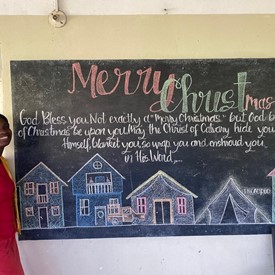 Merry Christmas
God Bless you. Not exactly a "Merry Christmas" but God b
of Christmas be upon you. May the Christ of Calvary hide you
Himself, blanket you, so wrap you and enshroud you,
in His Word....